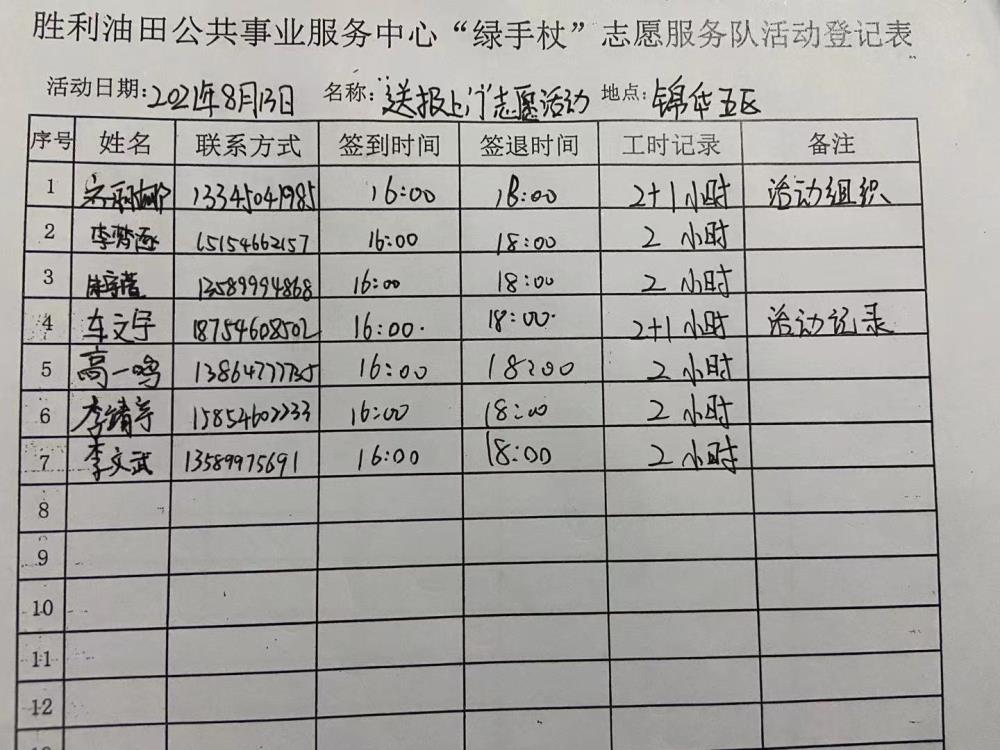 胜利油田公共事业服务中心“绿手杖”志愿服务队活动登记表
活动日期: 2021年8月13日 名称: 送报上门志愿活动 地点: 锦华五区
序号 姓名 联系方式 签到时间 签退时间 工时记录 备注
1 13345041985 16:00 18:00 2+1小时 活动组织
2 李梦逐 15154662157 16:00 18:00 2 小时
3 13589994868 16:00 18:00 2 小时
4 车文宇 18754608502 16:00. 18:00. 2+1小时 活动记录
5 高一鸣 13864777735 16:00 18:00 2小时
6 李靖宇 15854602233 16:00 18:00 2小时
7 李文武 13589975691 16:00 18:00 2小时
8
9
10
11
12